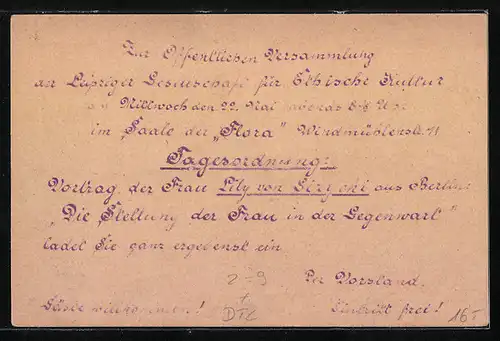 Zur Öffentlichen Versammlung
der Leipziger Gesellschaft für Ethische Kultur
Mittwoch den 22. Mai abends 8½ Uhr
im Saale der „Flora" Windmühlenstr.
Tagesordnung:
Vortrag der Frau Lily von Gizycki aus Berlin:
„Die Stellung der Frau in der Gegenwart"
ladet Sie ganz ergebenst ein
Der Vorstand.
Gäste willkommen! Eintritt frei!
16-